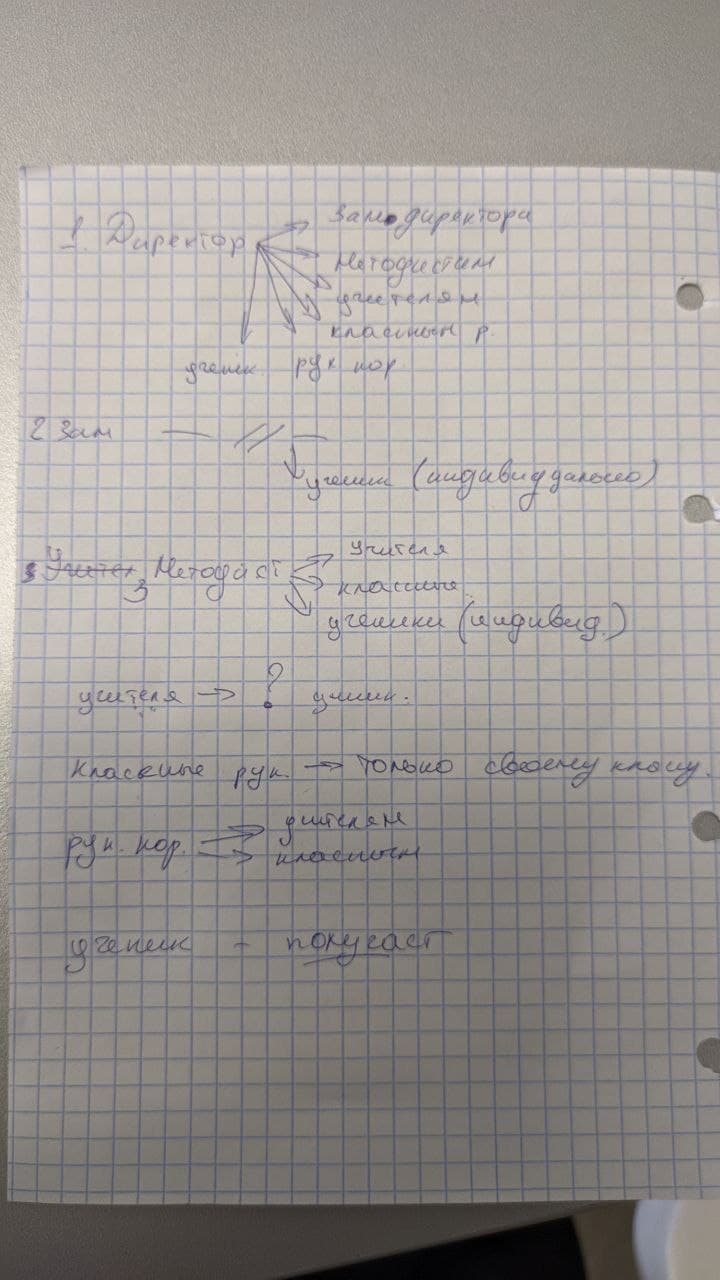 1. Директор
Зам директора
Методистам
учителям
классным р.
ученик. рук кор.
2 Зам — // —
ученик (индивидуально)
Учител 3 Методист
Учителя
классные
ученики (индивид.)
учителя → ? учник.
Классные рук. → только своему класу.
рук. кор.
учителям
классным
ученик - получает